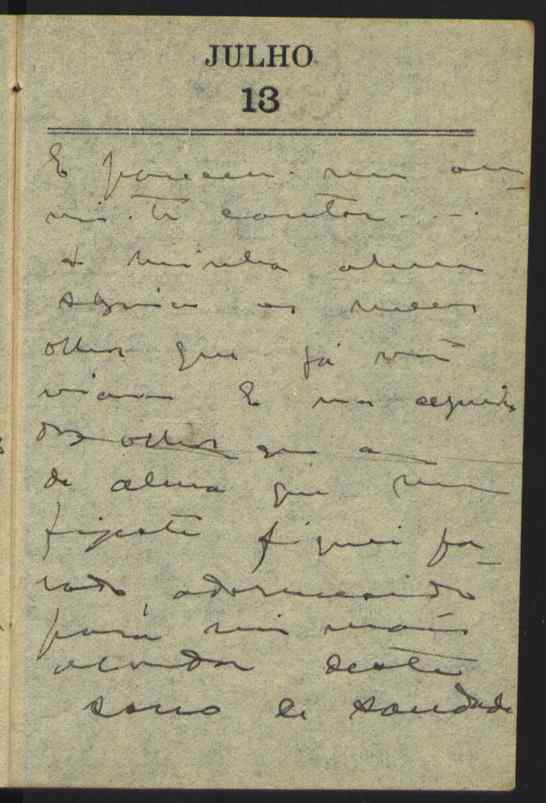 JULHO
13
E pareceu-me ou-
vi-te cantar....
A minha alma
seguiu os meus
olhos que já não
viam E na cegueira
dos olhos que a
da alma que me
fizeste fiquei pa-
rado, adormecido
para não mais
acordar deste
sono de saudade